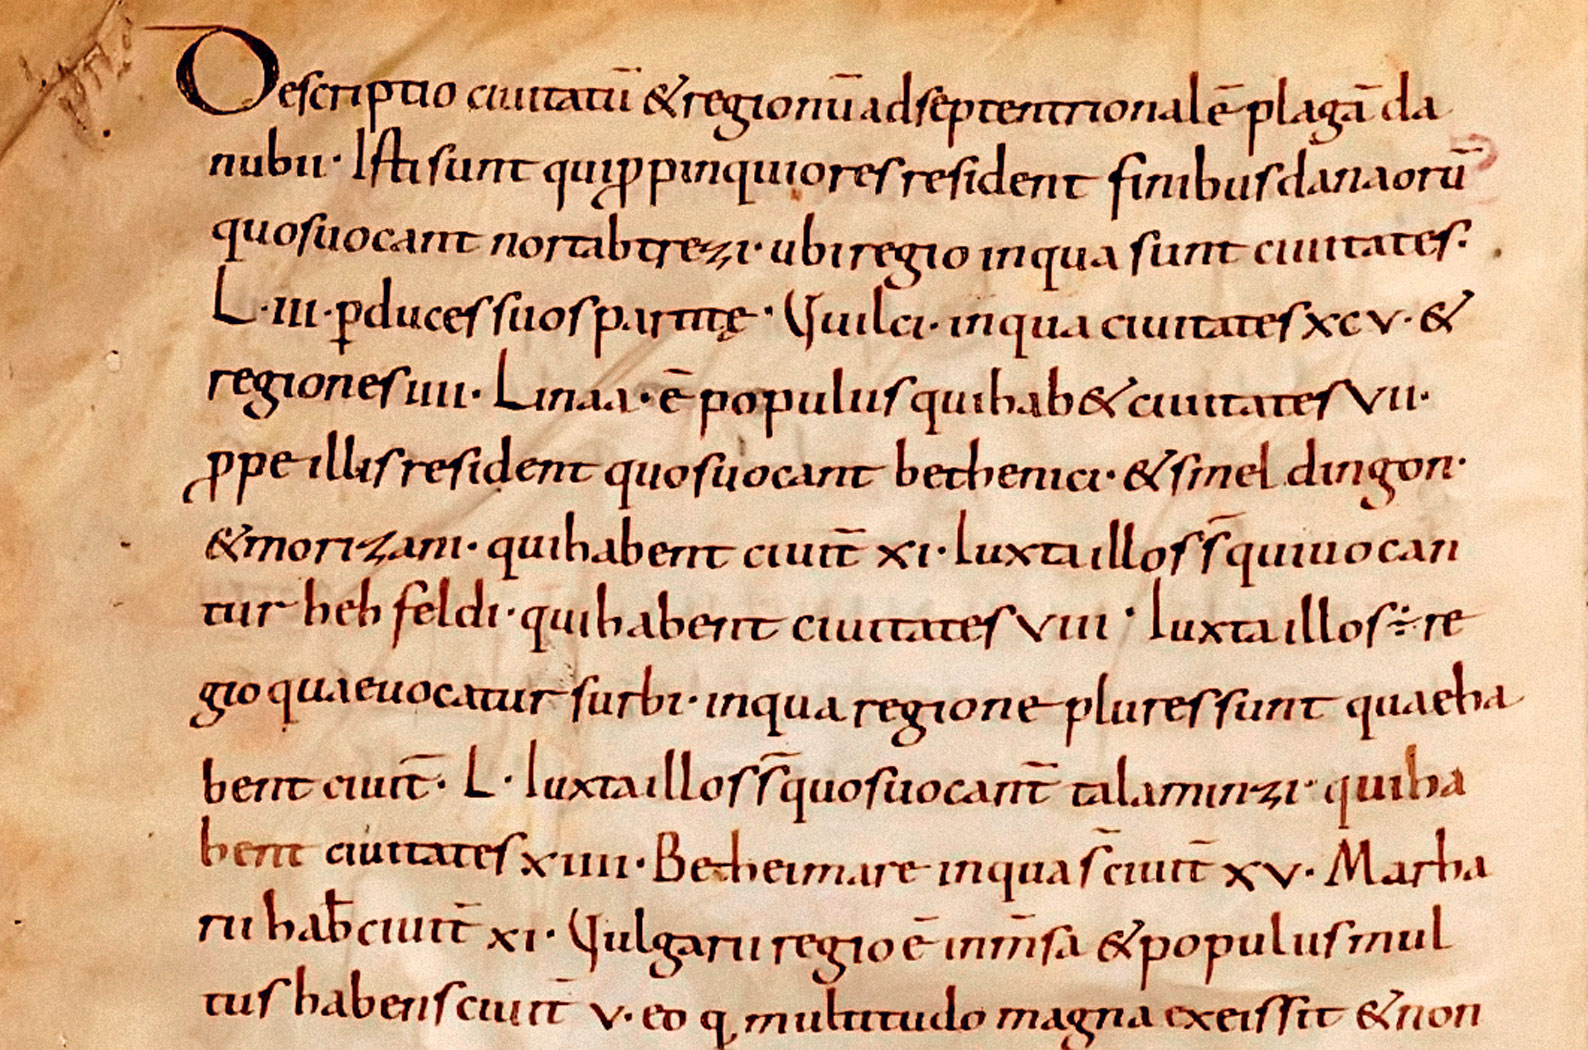 Descriptio ciuitatū & regionū ad septentrionalē plagā da
nubii· Isti sunt qui ꝓpinquiores resident finibus danaorū
quos uocant nortabtrezi· ubi regio in qua sunt ciuitates·
L·III· ꝑ duces suos partitę· Vuilci· in qua ciuitates xcv· &
regiones IIII· Linaa· ē populus qui hab& ciuitates VII·
ꝓpe illis resident quos uocant bethenici· & smeldingon·
& morizani· qui habent ciuit̄ xI· Iuxta illos s̄ qui uocan
tur hehfeldi· qui habent ciuitates VIII· Iuxta illos ÷ re
gio quae uocatur surbi· in qua regione plures sunt quae ha
bent ciuit̄· L· Iuxta illos s̄ quos uocant̄ talaminzi· qui ha
bent ciuitates xIIII· Betheimare in qua s̄ ciuit̄ xv· Marha
rii hab̄ ciuit̄ xI· Vulgarii regio ē inm̄sa & populus mul
tus habens ciuit̄ v· eo q multitudo magna ex eis sit & non